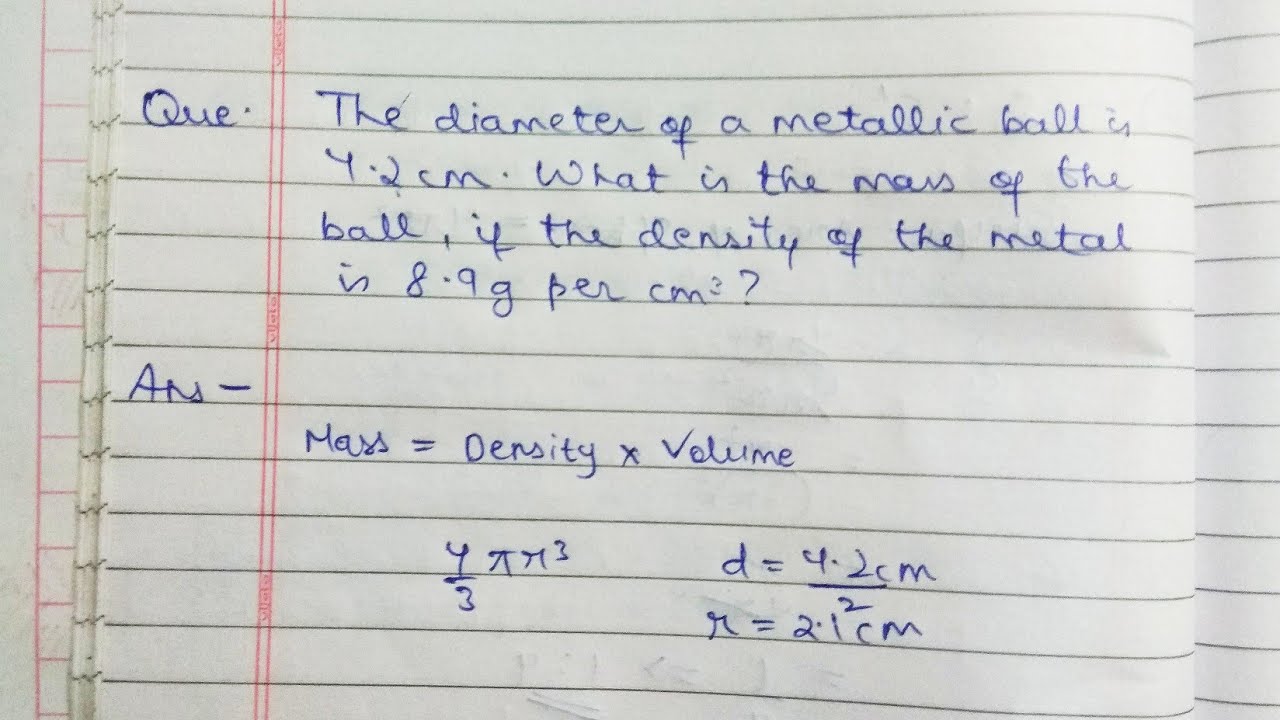 Que. The diameter of a metallic ball is
4.2cm. What is the mass of the
ball, if the density of the metal
is 8.9g per cm³?
Ans –
Mass = Density × Volume
4/3 πr³ d = 4.2cm
2
r = 2.1cm